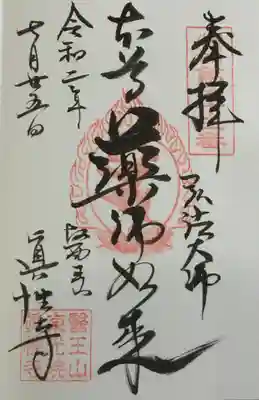 奉拝
弘法大師
本尊薬師如来
眞性寺
令和二年
七月廿五日
醫王山
東光院
眞性寺